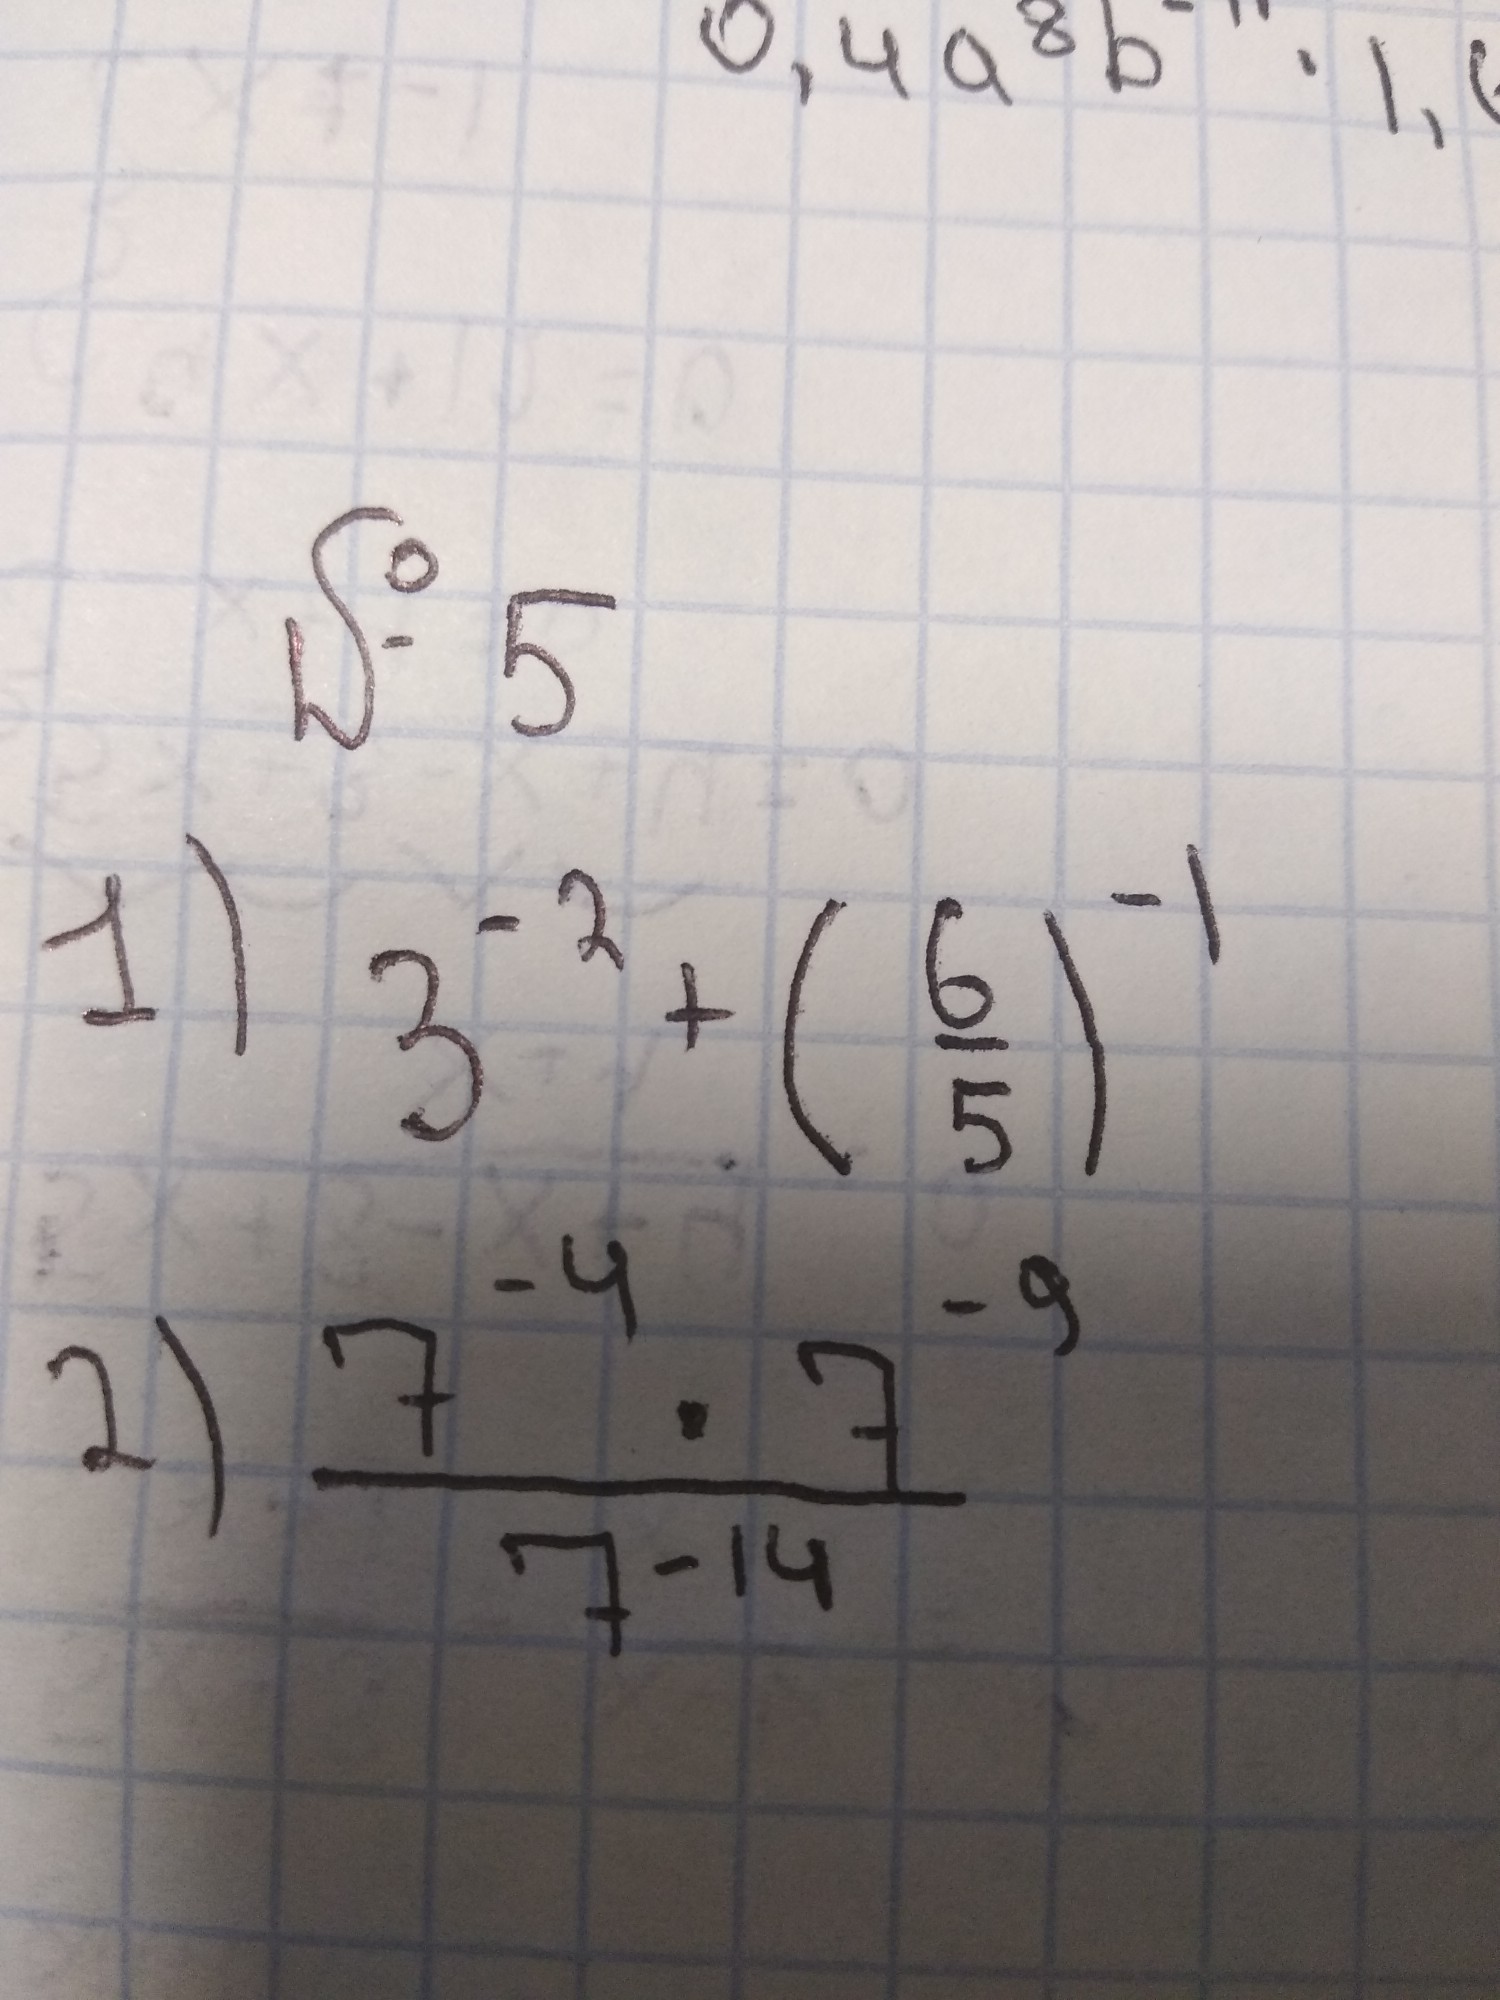 0,4a⁸b⁻¹¹ · 1,
№ 5
1) 3⁻² + (6/5)⁻¹
2) 7⁻⁴ · 7⁻⁹ / 7⁻¹⁴